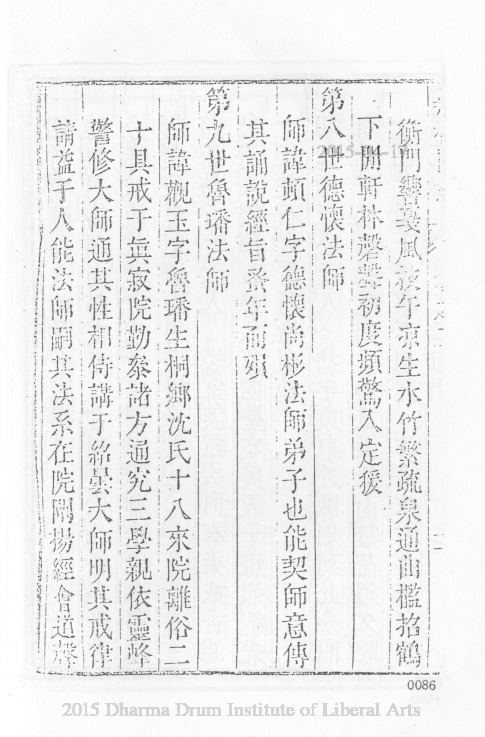 衡門響戞風夜午凉生水竹繁疏泉通曲檻招鶴
下閒軒林磬聲初度頻驚入定猨
第八世德懷法師
師諱頓仁字德懷尚彬法師弟子也能契師意傳
其誦說經旨蚤年而殞
第九世魯璠法師
師諱觀玉字魯璠生桐鄉沈氏十八來院離俗二
十具戒于眞寂院勤叅諸方通究三學親依靈峰
警修大師通其性相侍講于紹曇大師明其戒律
請益于人能法師嗣其法系在院闡揚經會道聲
0086
2015 Dharma Drum Institute of Liberal Arts